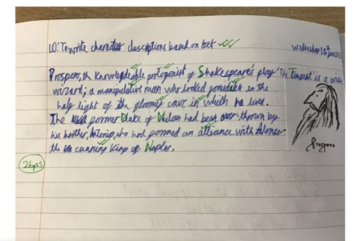 LO: To write character descriptions based on text
Wednesday 16th
Prospero, the knowledgeable protagonist of Shakespeare's play 'The Tempest' is a wise
wizard; a manipulative man who looked ponderous in the
half light of the gloomy cave in which he lives.
The former Duke of Milan had been over thrown by
his brother, Antonio, who had formed an alliance with Alonso
the cunning King of Naples.
2hps